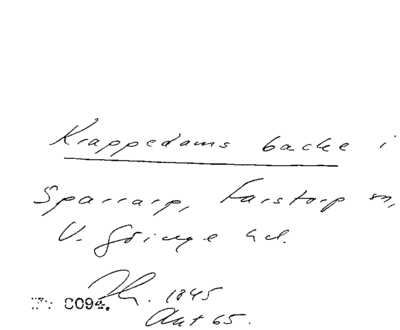 Krappedams backe i
Sparrarp, Farstorp sn,
V. Göinge hd.
1845
0094.
Akt 65.